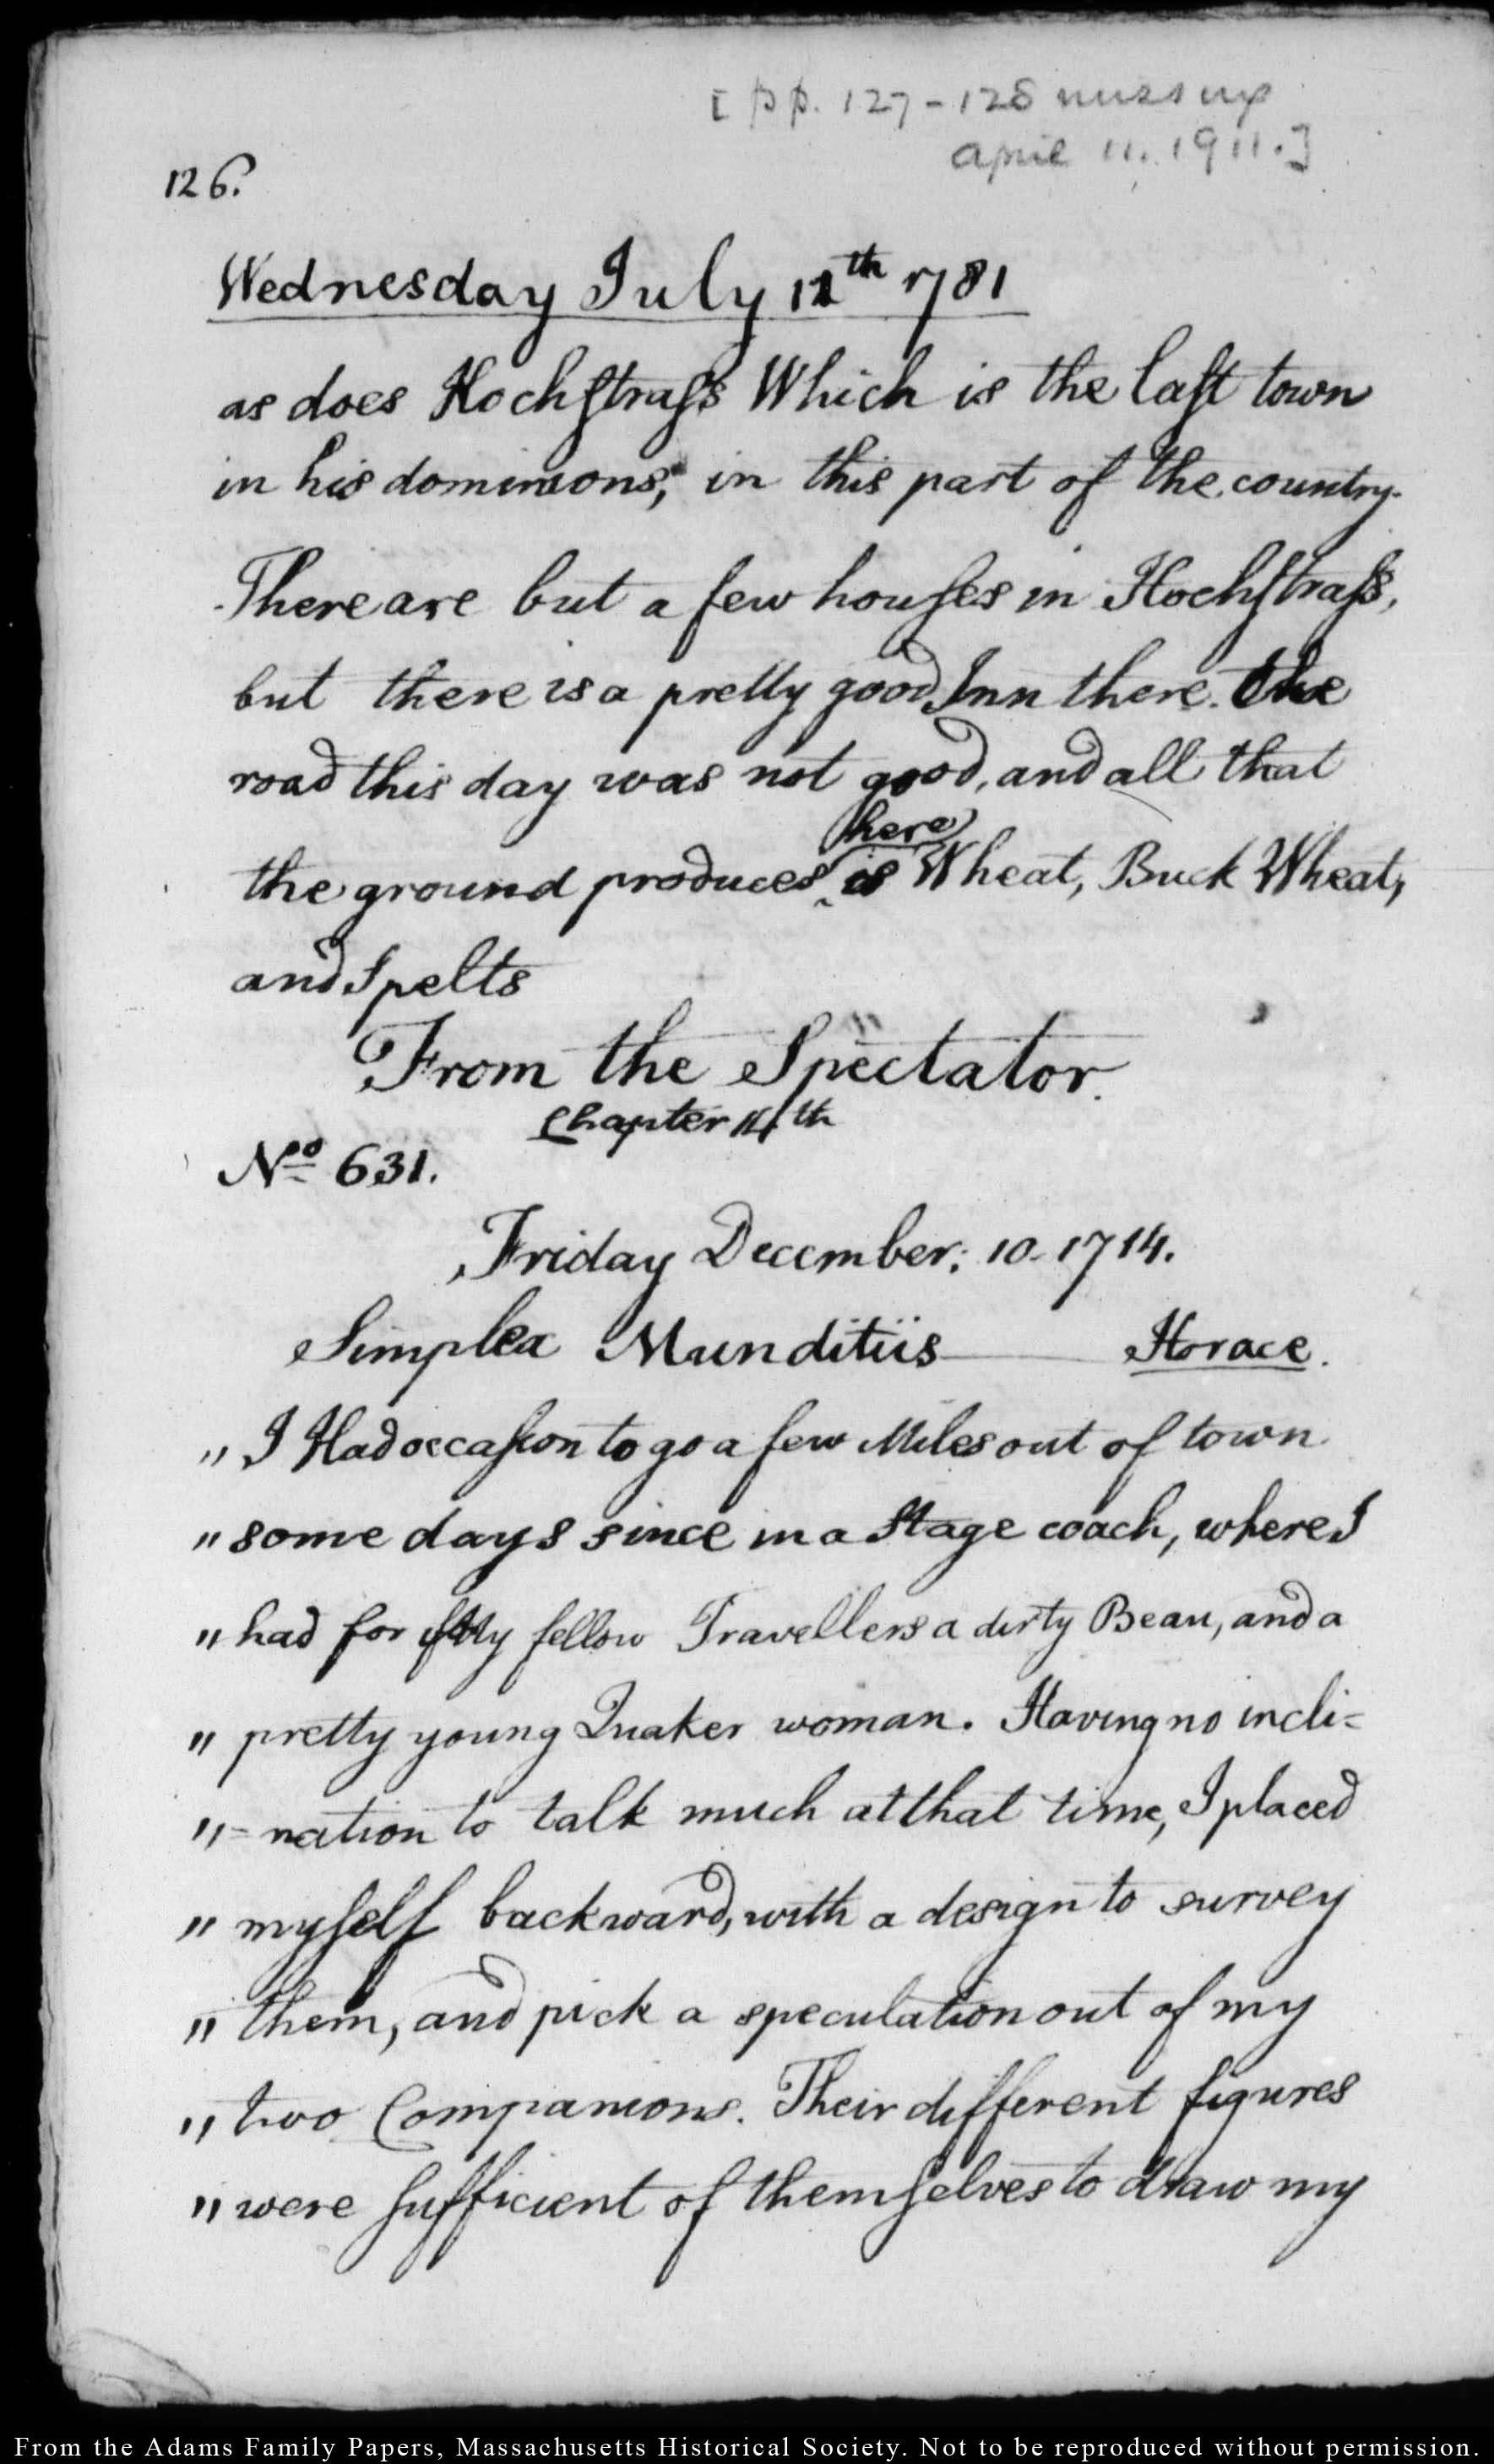 [pp. 127-128 missing
April 11. 1911.]
126.
Wednesday July 11th 1781
as does Hochstrass Which is the last town
in his dominions, in this part of the country.
There are but a few houses in Hochstrass,
but there is a pretty good Inn there. the
road this day was not good, and all that
here
the ground produces ‸ is Wheat, Buck Wheat,
and Spelts
From the Spectator.
Chapter 14th
No 631.
Friday December: 10. 1714.
Simplex Munditiis Horace.
" I Had occasion to go a few Miles out of town
" some days since in a Stage coach, where I
" had for My fellow Travellers a dirty Beau, and a
" pretty young Quaker woman. Having no incli=
" =nation to talk much at that time, I placed
" myself backward, with a design to survey
" them, and pick a speculation out of my
" two Companions. Their different figures
" were sufficient of themselves to draw my
From the Adams Family Papers, Massachusetts Historical Society. Not to be reproduced without permission.